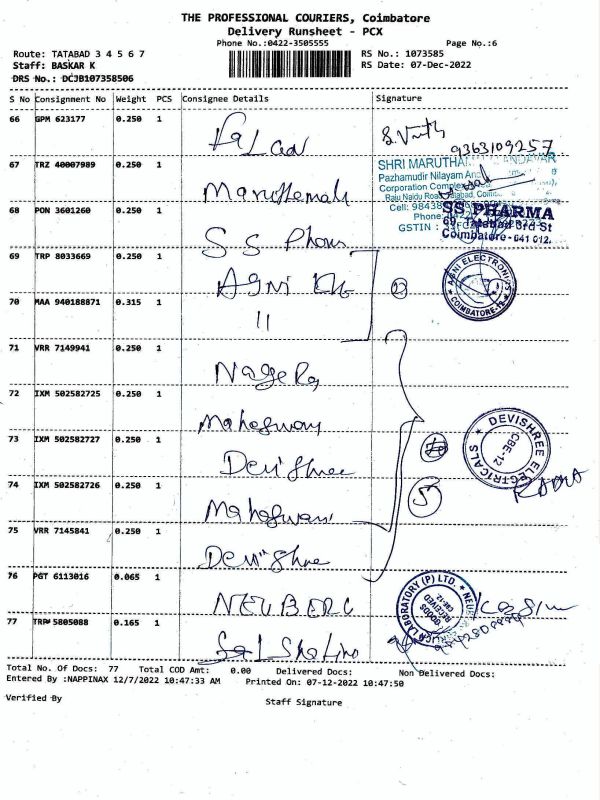 THE PROFESSIONAL COURIERS, Coimbatore
Delivery Runsheet - PCX
Phone No.:0422-3505555 Page No.:6
Route: TATABAD 3 4 5 6 7 RS No.: 1073585
Staff: BASKAR K RS Date: 07-Dec-2022
DRS No.: DCJB107358506
S No Consignment No Weight PCS Consignee Details Signature
66 GPM 623177 0.250 1
9363109257
67 TRZ 40007989 0.250 1
SHRI MARUTHA
Pazhamudir Nilayam And
Corporation Complex
Raju Naidu Road
Cell: 9843
Phone
GSTIN :
68 PON 3601260 0.250 1 S S Pham
SS PHARMA
69, Tatabad 3rd St
Coimbatore-641 012.
69 TRP 8033669 0.250 1 AGNI
AGNI ELECTRONICS
COIMBATORE-12
70 MAA 940188871 0.315 1 11
71 VRR 7149941 0.250 1
72 IXM 502582725 0.250 1 Maheswary
73 IXM 502582727 0.250 1 Devi Shree
DEVISHREE ELECTRICALS
CBE-12
74 IXM 502582726 0.250 1
5
75 VRR 7145841 0.250 1 Devi Shree
76 PGT 6113016 0.065 1 NEUBERG
LABORATORY (P) LTD.
GOODS
RECEIVED
CBE-12
77 TRP 5805088 0.165 1
Total No. Of Docs: 77 Total COD Amt: 0.00 Delivered Docs: Non Delivered Docs:
Entered By :NAPPINAX 12/7/2022 10:47:33 AM Printed On: 07-12-2022 10:47:50
Verified By Staff Signature